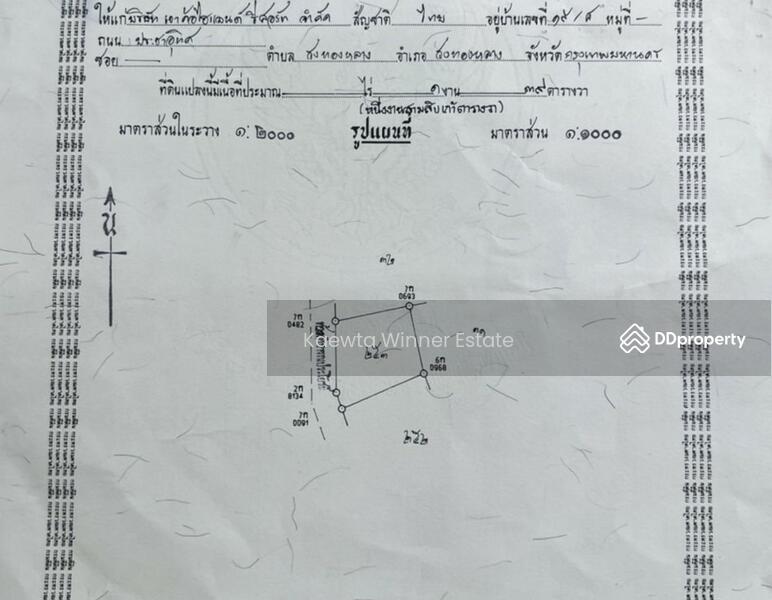 ให้แก่ บริษัท เอาค้อไฮแลนด์ รีสอร์ท จำกัด สัญชาติ ไทย อยู่บ้านเลขที่ ๑๙/๕ หมู่ที่ -
ถนน ประชาอุทิศ
ซอย ตำบล วังทองหลาง อำเภอ วังทองหลาง จังหวัด กรุงเทพมหานคร
ที่ดินแปลงนี้มีเนื้อที่ประมาณ ไร่ ๑ งาน ๓๙ ตารางวา
(หนึ่งงานสามสิบเก้าตารางวา)
มาตราส่วนในระวาง ๑:๒๐๐๐ รูปแผนที่ มาตราส่วน ๑:๑๐๐๐
น
7ฅ
0693
7ฅ
0482
Kaewta Winner Estate
DDproperty
๓๑
๒๕๓
6ฅ
0968
2ฅ
8134
7ฅ
0091
๒๕๒